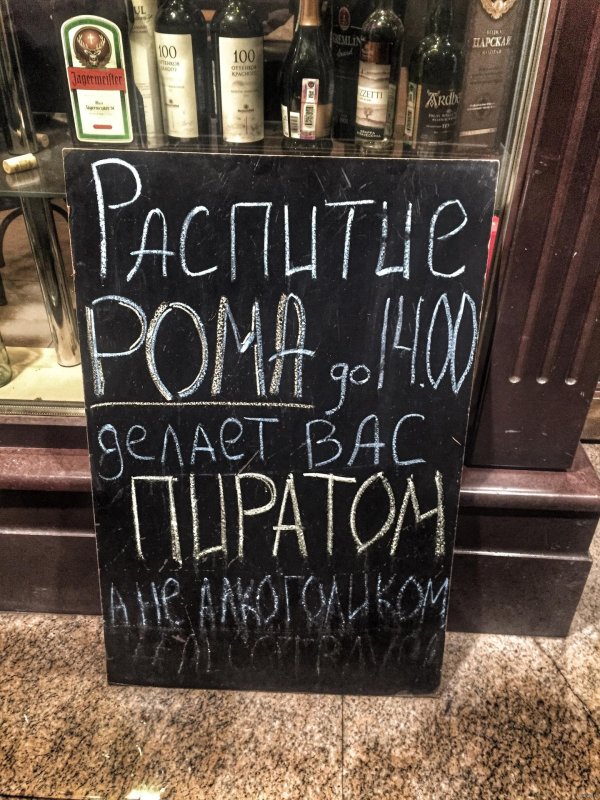 Jägermeister
100
ОТТЕНКОВ
100
ОТТЕНКОВ
КРАСНОГО
ЦАРСКАЯ
Распитие
РОМА до 14.00
делает ВАС
ПИРАТОМ
А НЕ АЛКОГОЛИКОМ